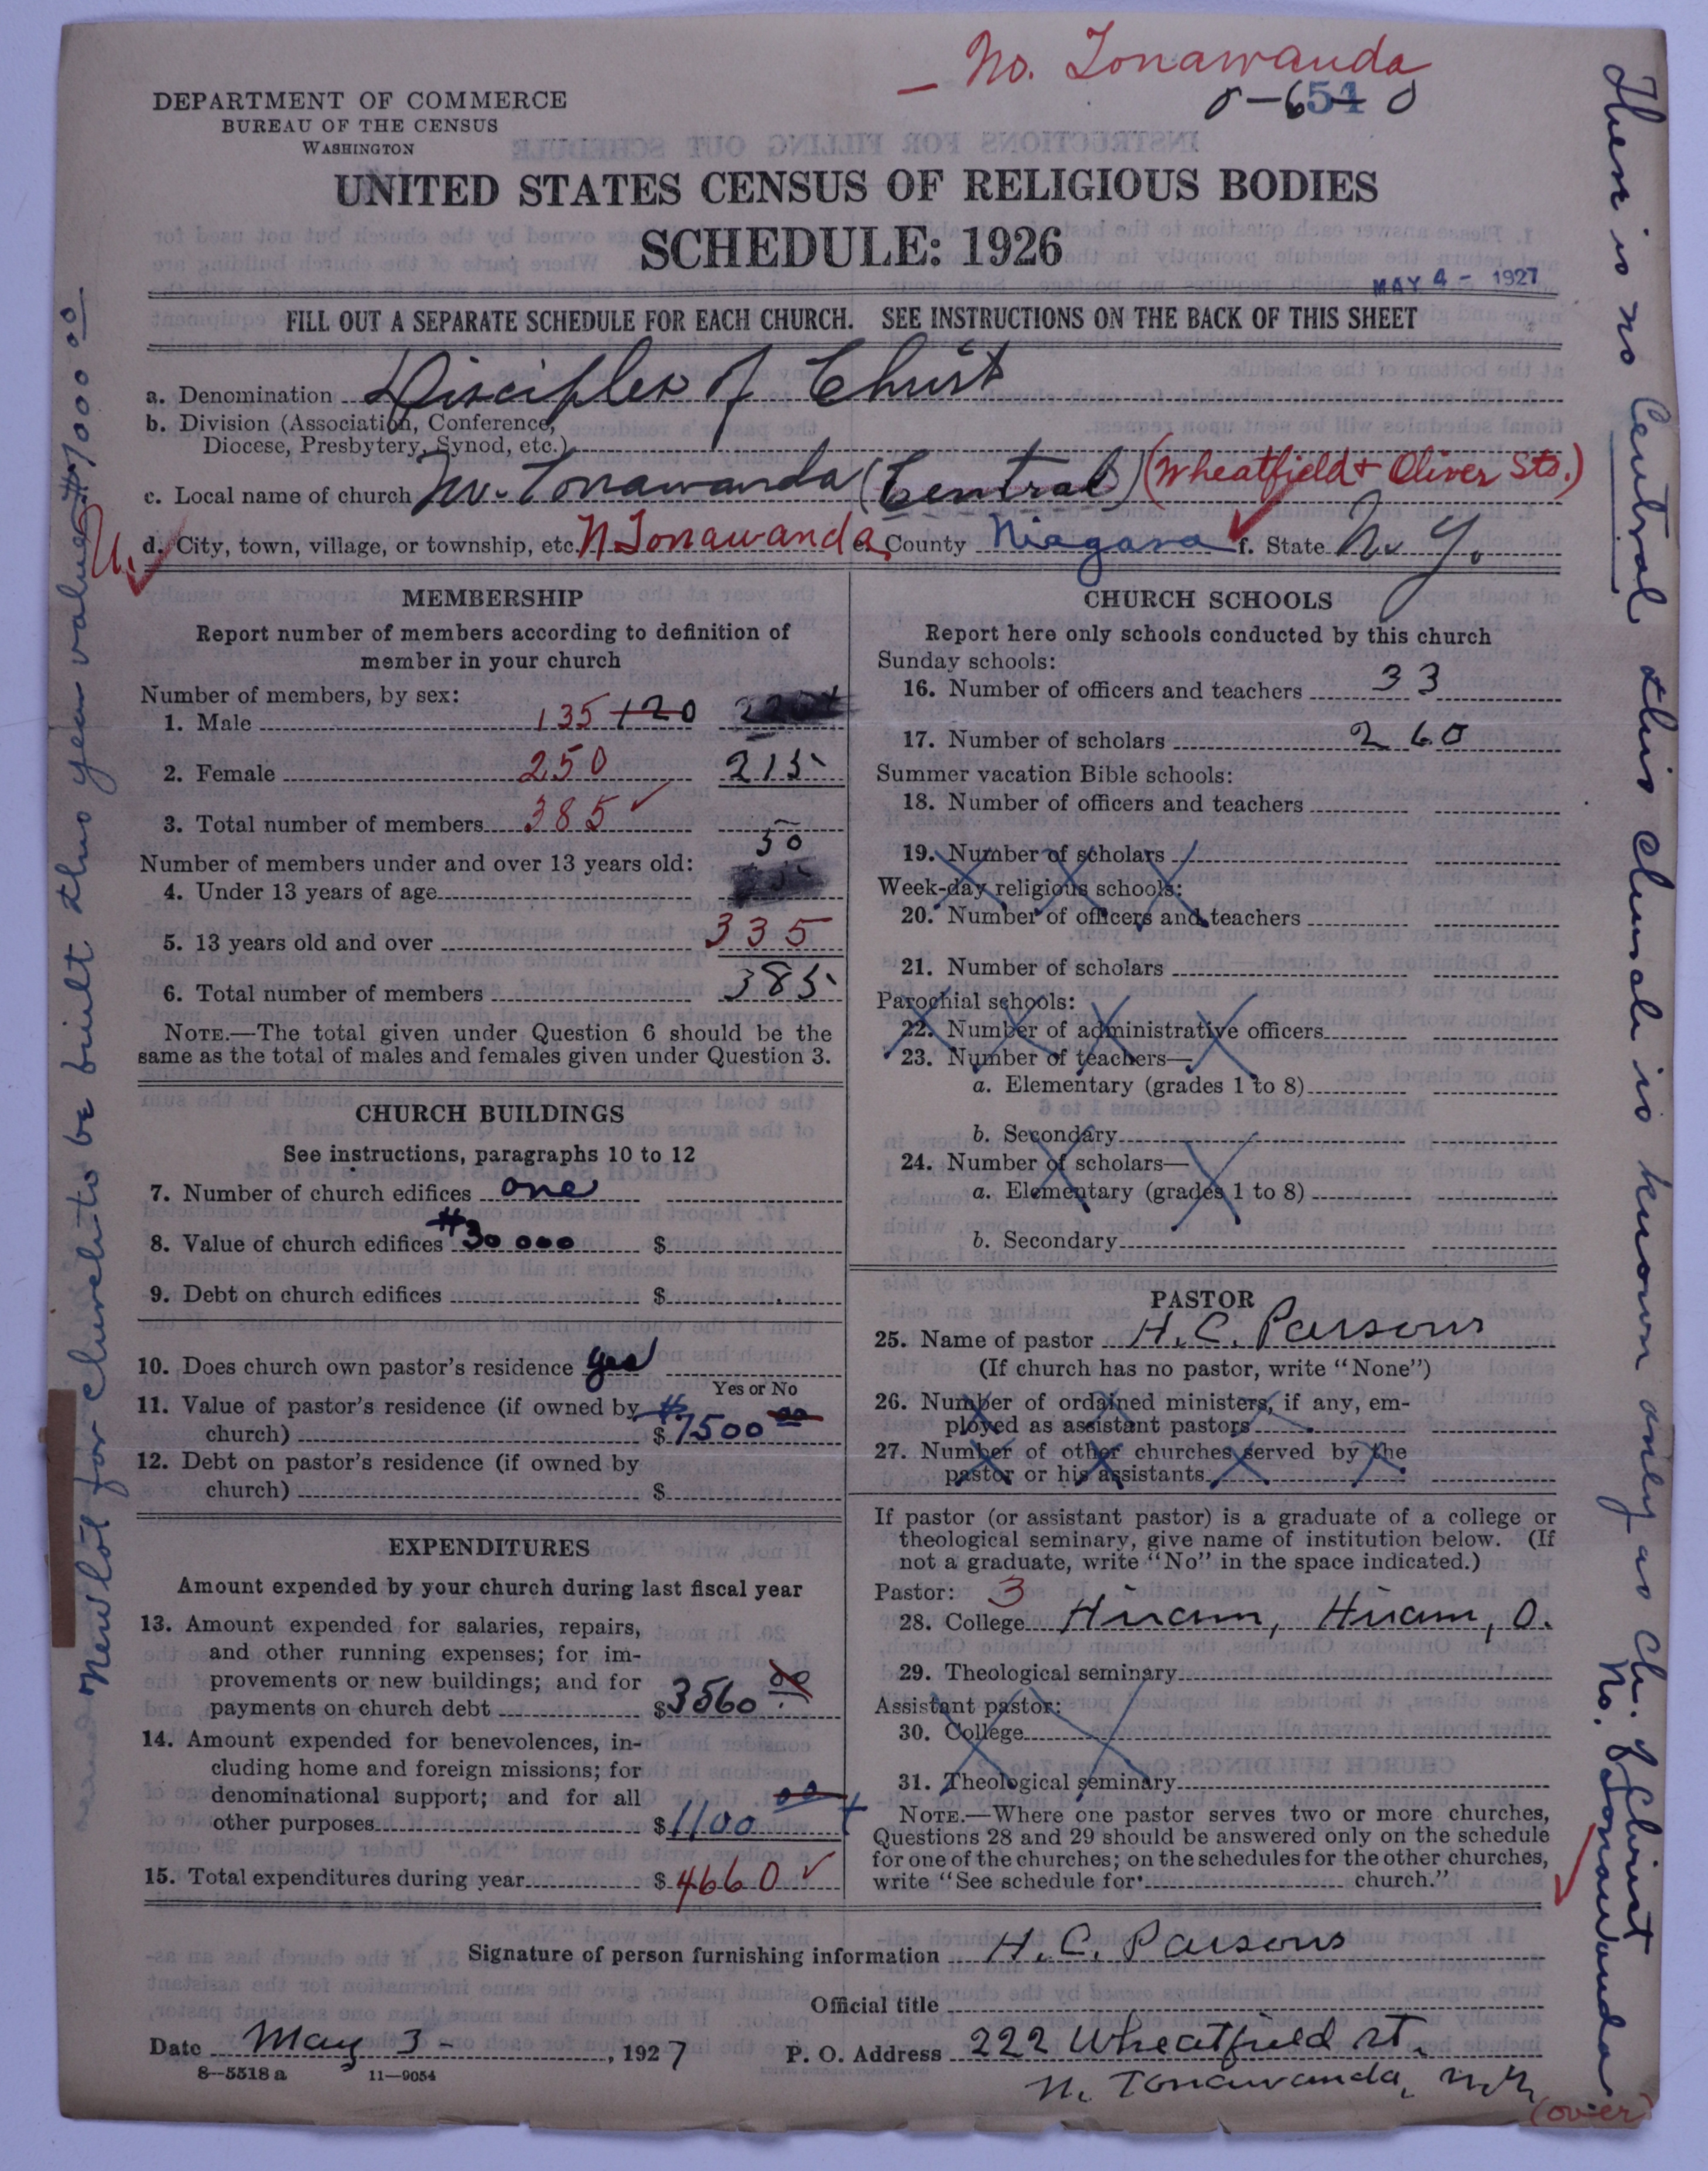 — No. Tonawanda
DEPARTMENT OF COMMERCE
BUREAU OF THE CENSUS
WASHINGTON
UNITED STATES CENSUS OF RELIGIOUS BODIES
SCHEDULE: 1926
MAY 4 - 1927
FILL OUT A SEPARATE SCHEDULE FOR EACH CHURCH. SEE INSTRUCTIONS ON THE BACK OF THIS SHEET
a. Denomination Disciples of Christ
b. Division (Association, Conference,
Diocese, Presbytery, Synod, etc.)
c. Local name of church No. Tonawanda (Central) (Wheatfield + Oliver Sts.)
d. City, town, village, or township, etc. N Tonawanda e. County Niagara f. State N. Y.
U.
MEMBERSHIP
Report number of members according to definition of
member in your church
Number of members, by sex:
1. Male 135 120
2. Female 250 215
3. Total number of members 385 ✓
Number of members under and over 13 years old:
4. Under 13 years of age 50
5. 13 years old and over 335
6. Total number of members 385
NOTE.—The total given under Question 6 should be the
same as the total of males and females given under Question 3.
CHURCH BUILDINGS
See instructions, paragraphs 10 to 12
7. Number of church edifices one
8. Value of church edifices $30000 $
9. Debt on church edifices $
10. Does church own pastor's residence yes
Yes or No
11. Value of pastor's residence (if owned by
church) $ 7500 00
12. Debt on pastor's residence (if owned by
church) $
EXPENDITURES
Amount expended by your church during last fiscal year
13. Amount expended for salaries, repairs,
and other running expenses; for im-
provements or new buildings; and for
payments on church debt $3560 00
14. Amount expended for benevolences, in-
cluding home and foreign missions; for
denominational support; and for all
other purposes $1100 00
15. Total expenditures during year $4660 ✓
CHURCH SCHOOLS
Report here only schools conducted by this church
Sunday schools:
16. Number of officers and teachers 33
17. Number of scholars 260
Summer vacation Bible schools:
18. Number of officers and teachers
19. Number of scholars
Week-day religious schools:
20. Number of officers and teachers
21. Number of scholars
Parochial schools:
22. Number of administrative officers
23. Number of teachers—
a. Elementary (grades 1 to 8)
b. Secondary
24. Number of scholars—
a. Elementary (grades 1 to 8)
b. Secondary
PASTOR
25. Name of pastor H. C. Parsons
(If church has no pastor, write "None")
26. Number of ordained ministers, if any, em-
ployed as assistant pastors
27. Number of other churches served by the
pastor or his assistants
If pastor (or assistant pastor) is a graduate of a college or
theological seminary, give name of institution below. (If
not a graduate, write "No" in the space indicated.)
Pastor: 3
28. College Hiram, Hiram, O.
29. Theological seminary
Assistant pastor:
30. College
31. Theological seminary
NOTE.—Where one pastor serves two or more churches,
Questions 28 and 29 should be answered only on the schedule
for one of the churches; on the schedules for the other churches,
write "See schedule for church."
Signature of person furnishing information H. C. Parsons
Official title
Date May 3 - , 1927 P. O. Address 222 Wheatfield St.
N. Tonawanda, N.Y.
8—5518 a 11—9054
(over)
New lot for church to be built this year valued $7000 00
There is no Central this church is known only as Ch. of Christ
No. Tonawanda